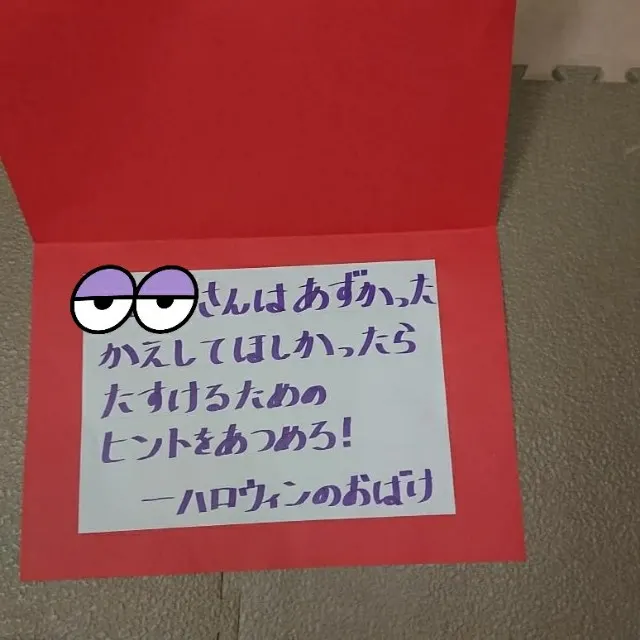 さんはあずかった
かえしてほしかったら
たすけるための
ヒントをあつめろ!
ーハロウィンのおばけ